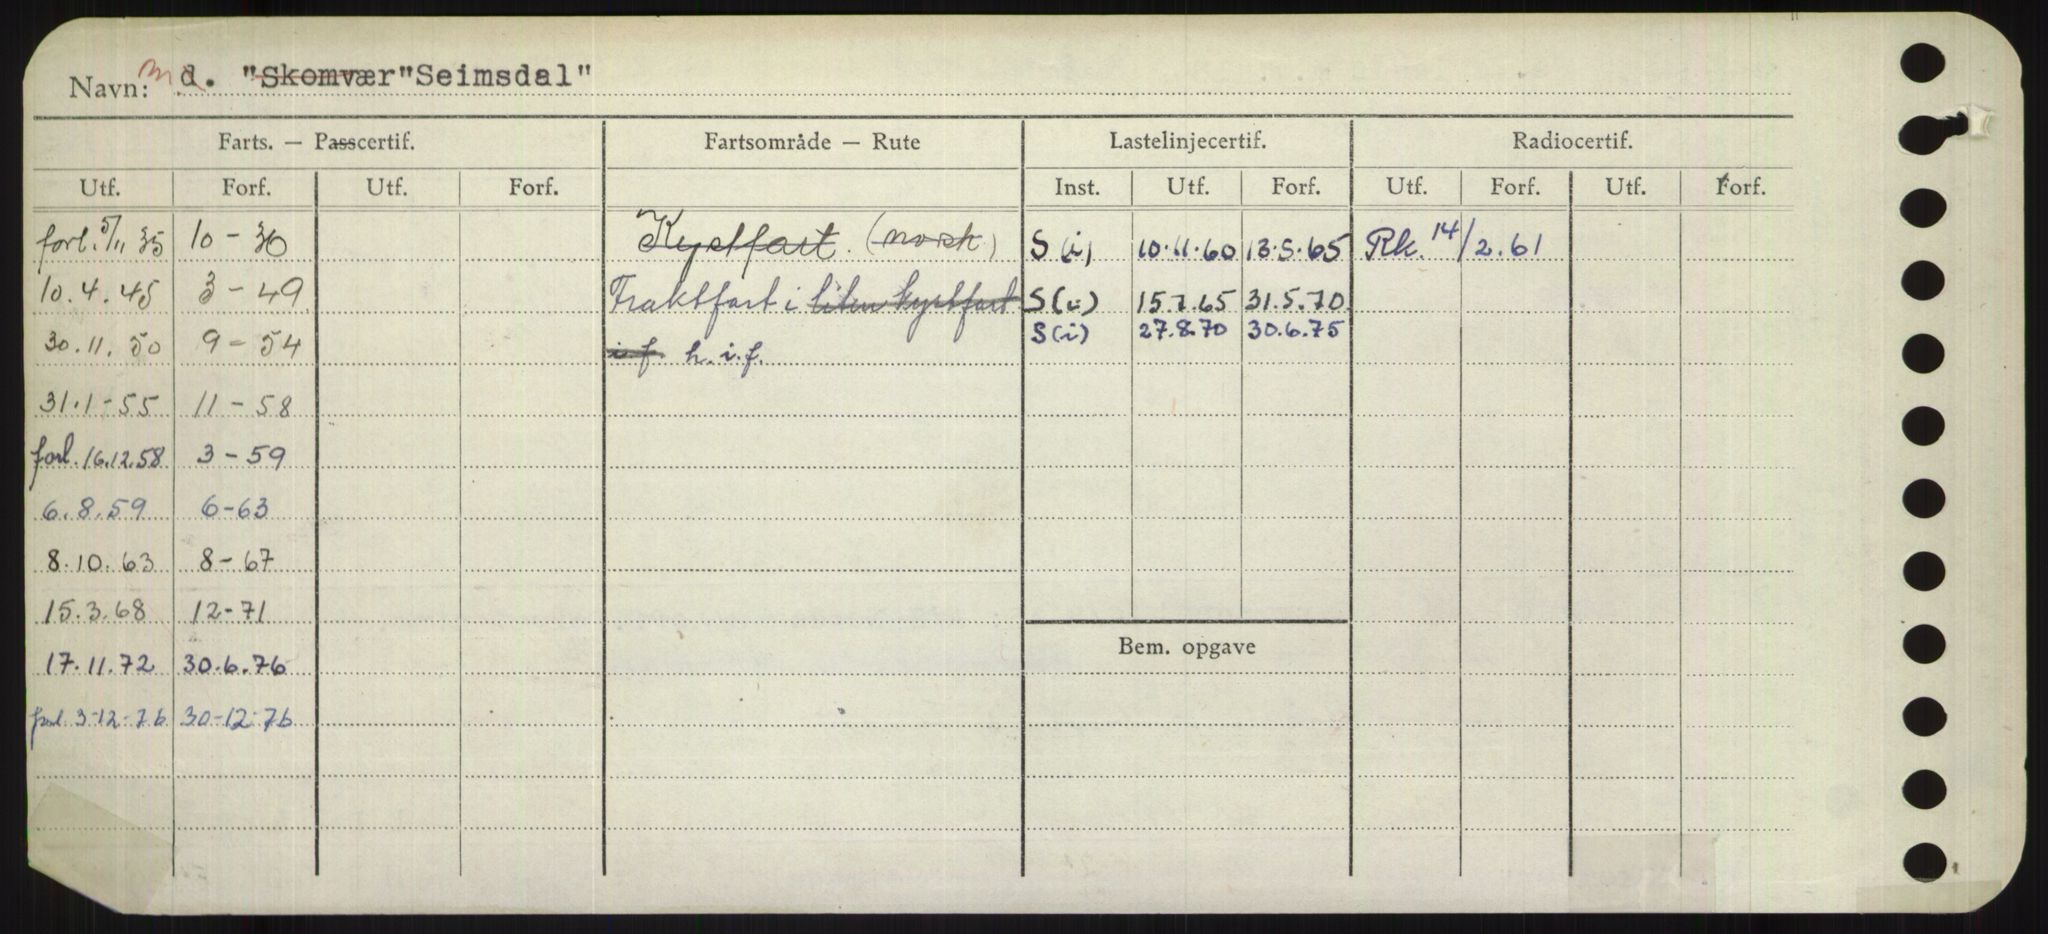 Navn: m d. "Skomvær "Seimsdal"
Farts. — Passcertif. Fartsområde — Rute Lastelinjecertif. Radiocertif.
Utf. Forf. Utf. Forf. Inst. Utf. Forf. Utf. Forf. Utf. Forf.
forl. 5/11 35 10 - 36 Kystfart. (norsk) S (i) 10.11.60 13.5.65 Rk. 14/2.61
10.4.45 3 - 49 Fraktfart i liten kystfart S (i) 15.7.65 31.5.70
30.11.50 9 - 54 i.f. h.i.f. S (i) 27.8.70 30.6.75
31.1-55 11 - 58
forl. 16.12.58 3 - 59
6.8.59 6-63
8.10.63 8-67
15.3.68 12-71
Bem. opgave
17.11.72 30.6.76
forl. 3-12-76 30-12-76